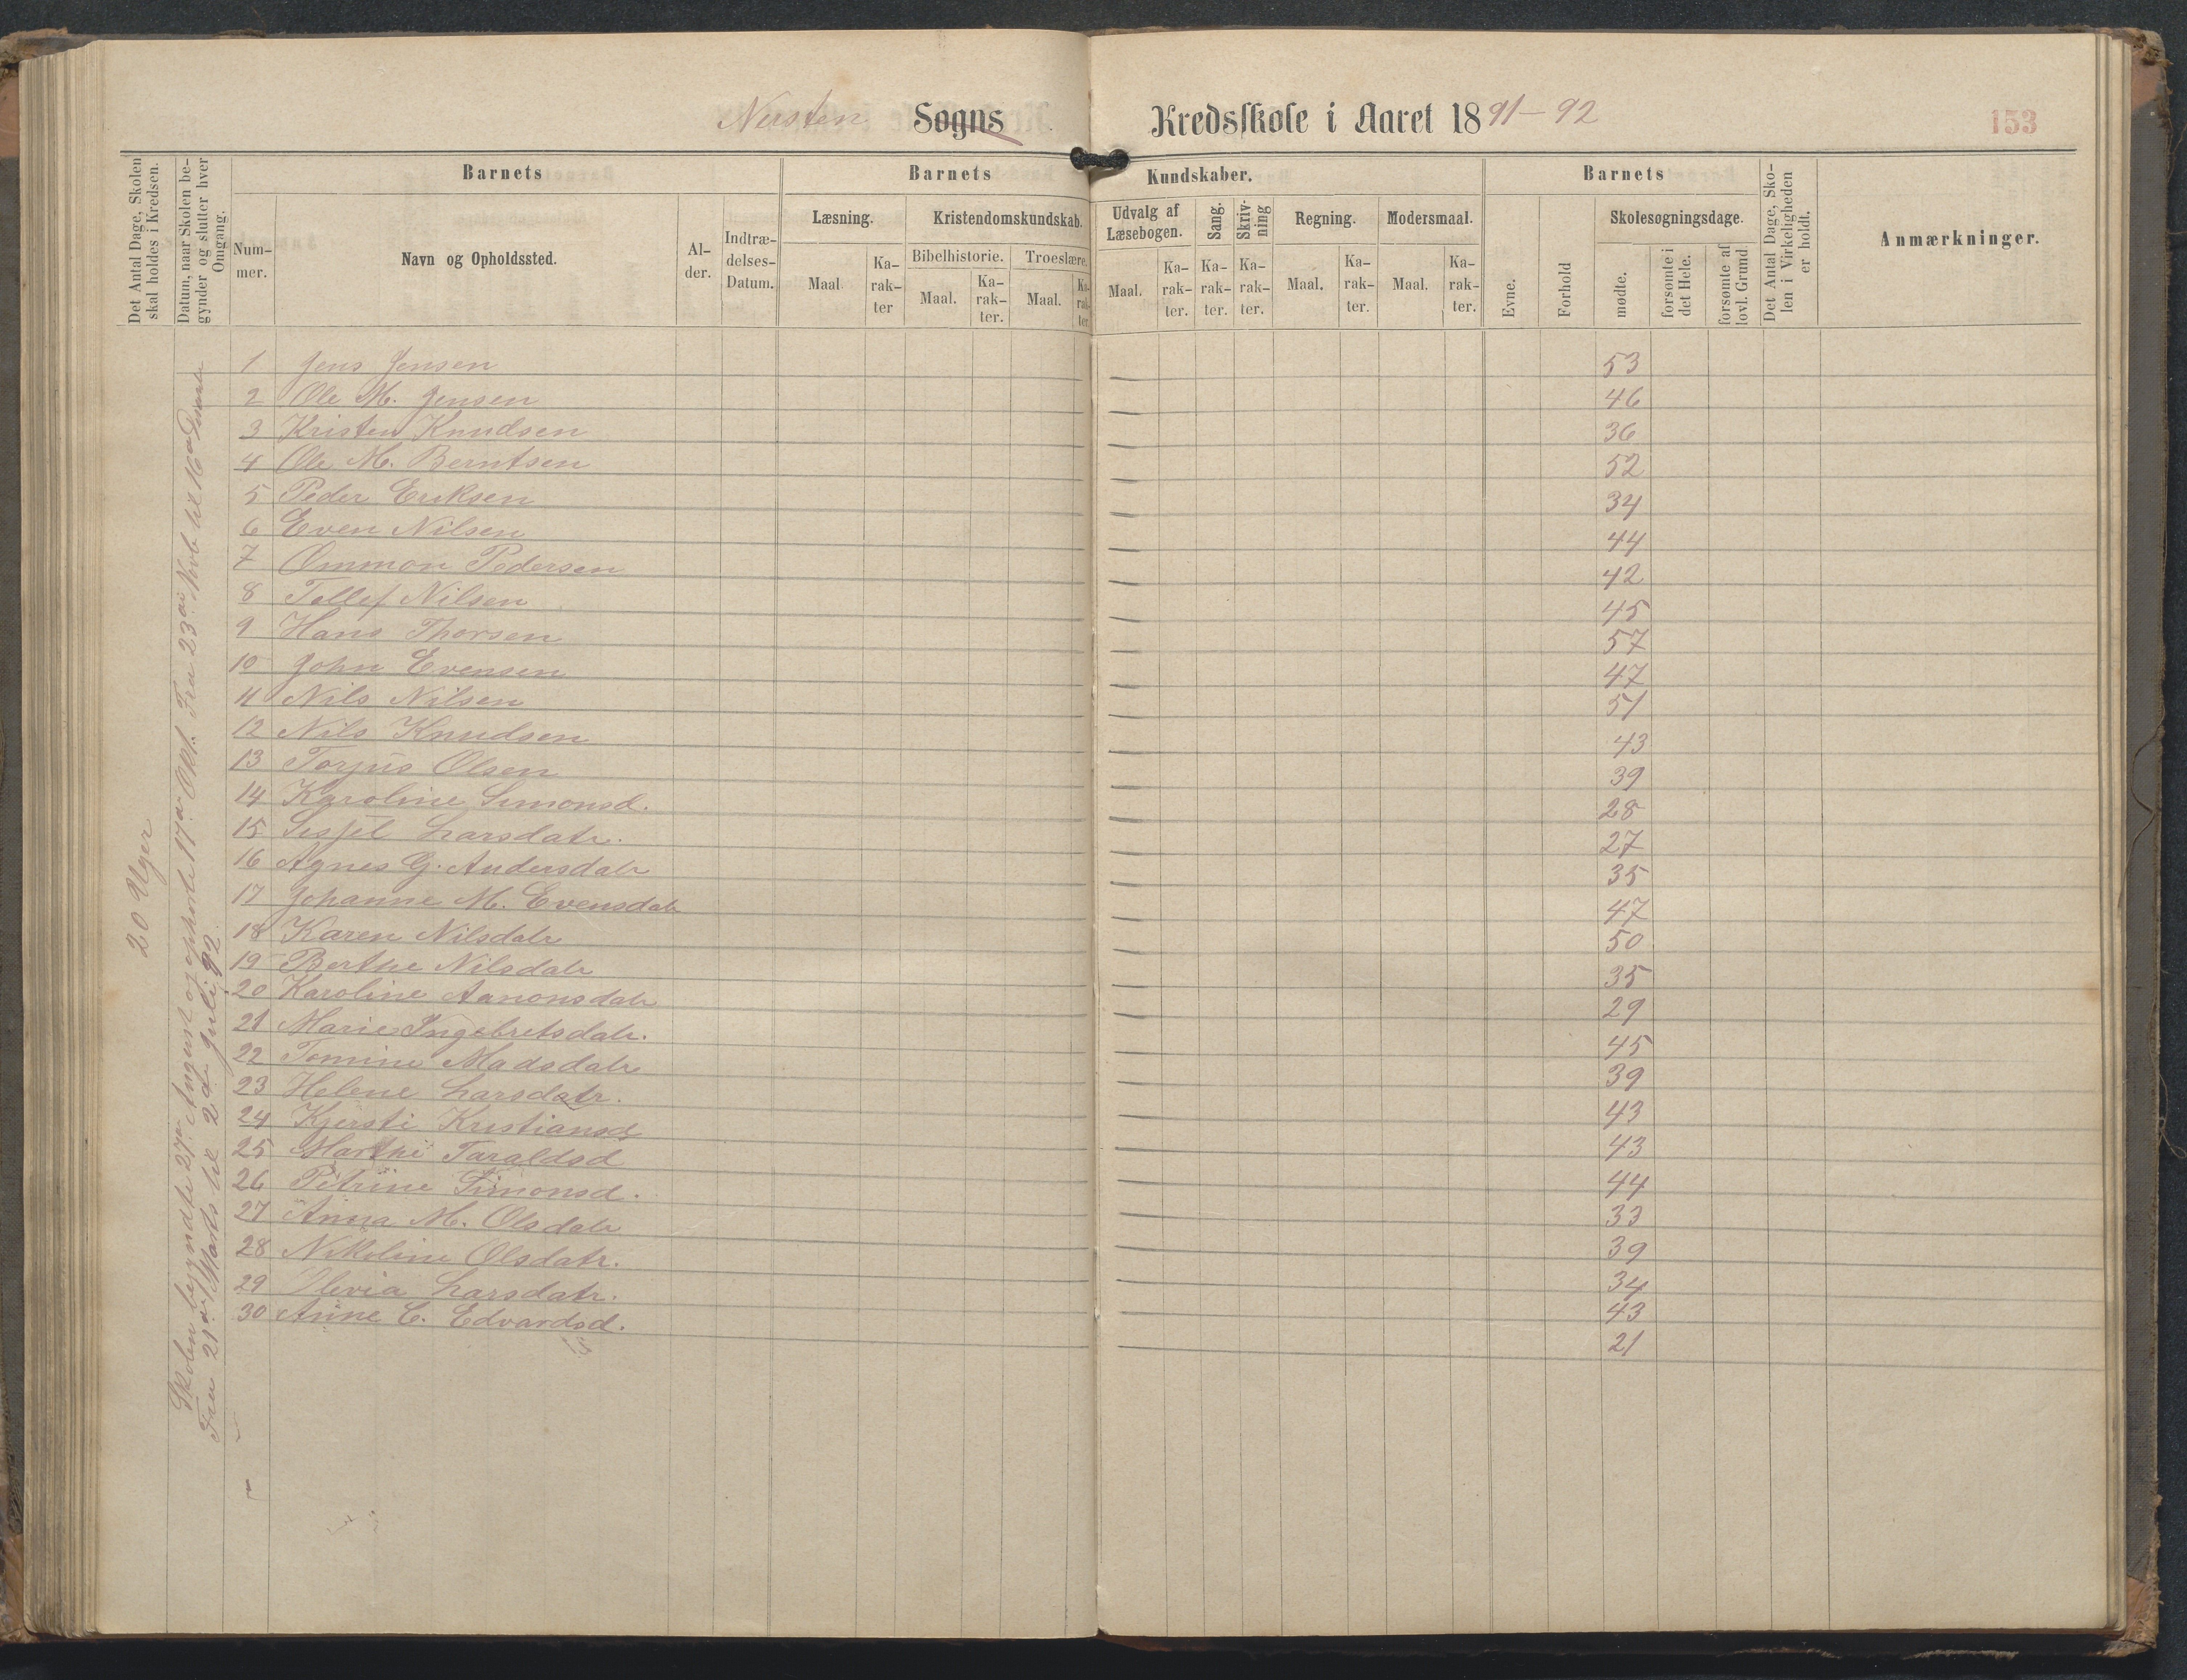 Nersten Sogns Kredsskole i Aaret 1891-92
153
Det Antal Dage, Skolen skal holdes i Kredsen.
Datum, naar Skolen be-
gynder og slutter hver
Omgang.
Barnets
Barnets
Kundskaber.
Barnets
Det Antal Dage, Sko-
len i Virkeligheden
er holdt.
Anmærkninger.
Num-
mer.
Navn og Opholdssted.
Al-
der.
Indtræ-
delses-
Datum.
Læsning.
Kristendomskundskab.
Udvalg af
Læsebogen.
Sang.
Skriv-
ning
Regning.
Modersmaal.
Evne.
Forhold
Skolesøgningsdage.
Maal
Ka-
rak-
ter
Bibelhistorie.
Troeslære.
Maal.
Ka-
rak-
ter.
Maal.
Ka-
rak-
ter.
Maal.
Ka-
rak-
ter.
Ka-
rak-
ter.
Ka-
rak-
ter.
Maal.
Ka-
rak-
ter.
Maal.
Ka-
rak-
ter.
mødte.
forsømte i
det Hele.
forsømte af
lovl. Grund
20 Uger
Skolen begyndte 27de August og ophørte 17de Okt. Fra 23de Novb til 16de
Fra 21de Marts til 2d Juli 92.
1 Jens Jensen 53
2 Ole M. Jensen 46
3 Kristen Knudsen 36
4 Ole M. Berntsen 52
5 Peder Eriksen 34
6 Even Nilsen 44
7 Ommon Pedersen 42
8 Tellef Nilsen 45
9 Hans Thorsen 57
10 John Evensen 47
11 Nils Nilsen 51
12 Nils Knudsen 43
13 Torjus Olsen 39
14 Karoline Simonsd. 28
15 Sisjel Larsdatr. 27
16 Agnes G. Andersdatr 35
17 Johanne M. Evensdatr 47
18 Karen Nilsdatr 50
19 Berthe Nilsdatr 35
20 Karoline Aanonsdatr 29
21 Marie Ingebretsdatr. 45
22 Tomine Madsdatr 39
23 Helene Larsdatr. 43
24 Kjersti Kristiansd 43
25 Marthe Taraldsd 44
26 Petrine Simonsd. 33
27 Anna M. Olsdatr 39
28 Nikoline Olsdatr. 34
29 Olevia Larsdatr. 43
30 Anne C. Edvardsd. 21